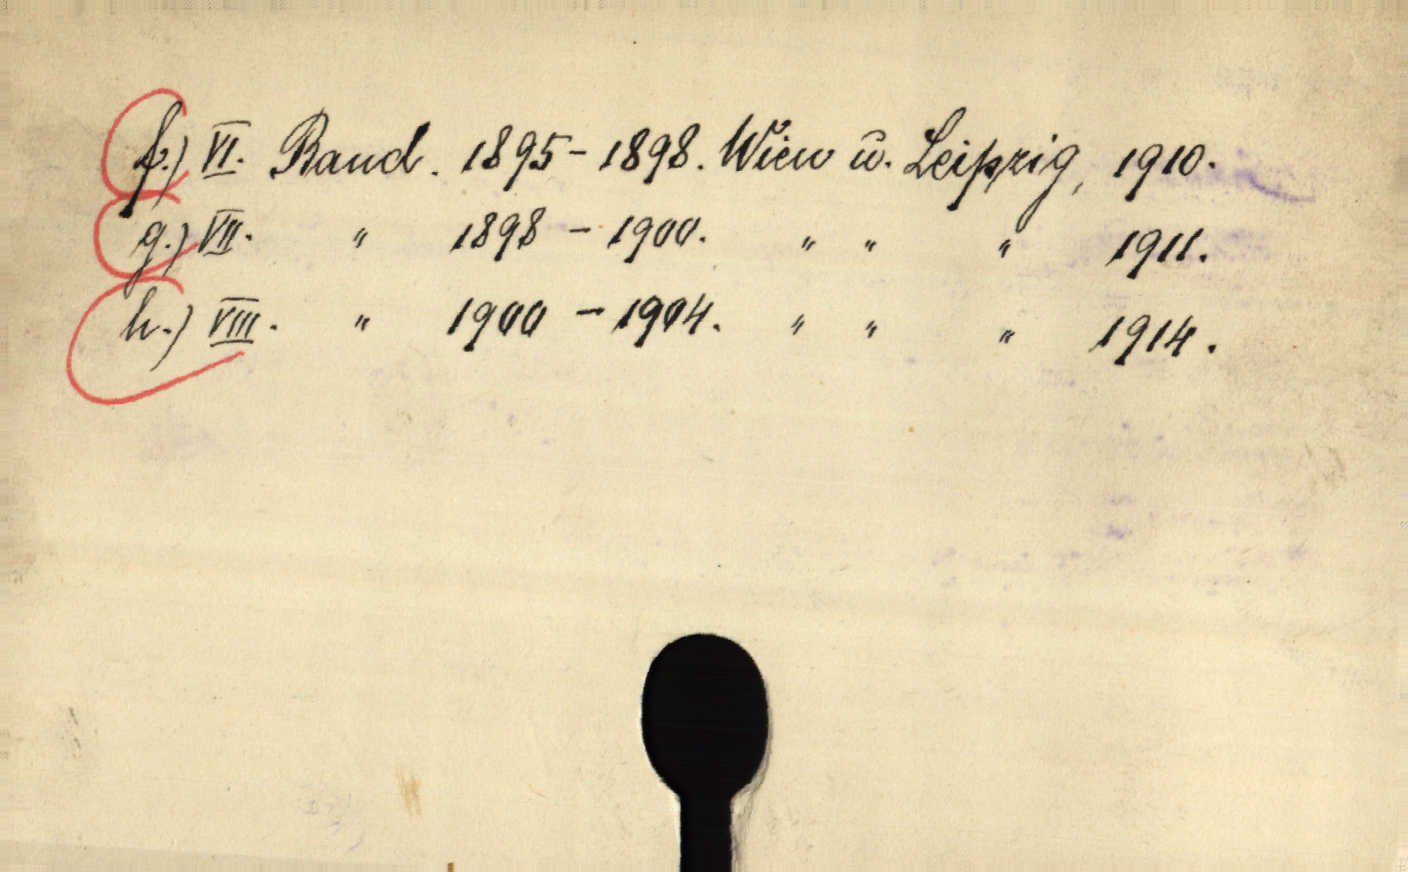 f.) VI. Band. 1895-1898. Wien u. Leipzig, 1910.
g.) VII. " 1898 - 1900. " " " 1911.
h.) VIII. " 1900 - 1904. " " " 1914.